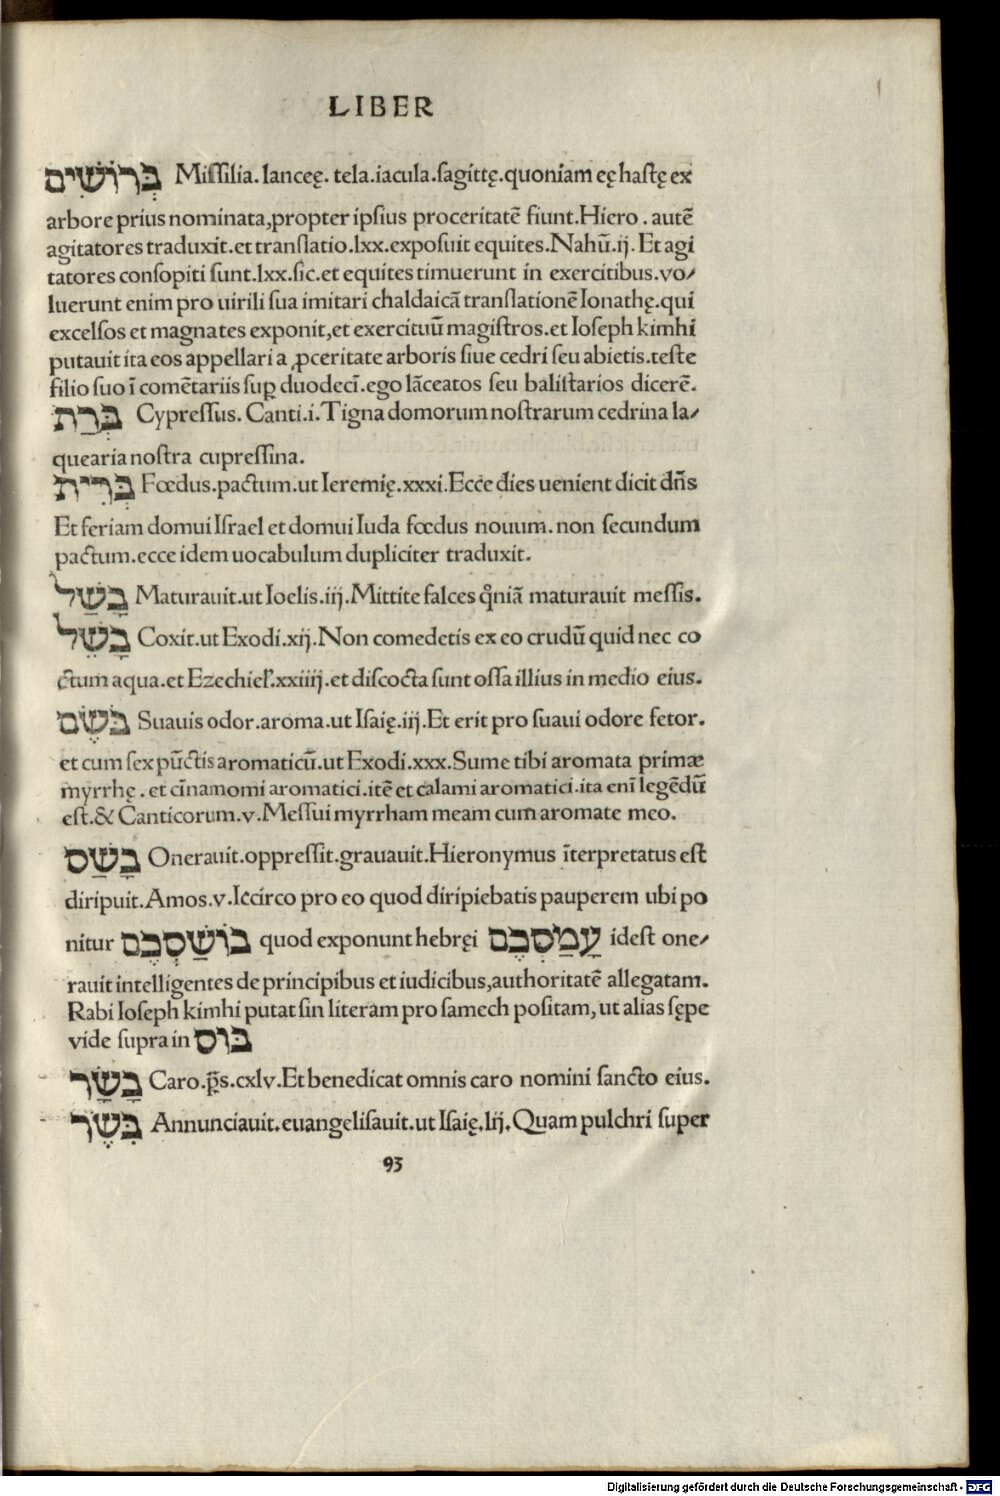 LIBER
בְּרוֹשִׁים Missilia. lanceę. tela.iacula.sagittę.quoniam eę hastę ex
arbore prius nominata,propter ipsius proceritatē fiunt.Hiero. autē
agitatores traduxit.et translatio.lxx.exposuit equites.Nahū.ij. Et agi
tatores consopiti sunt.lxx.sic.et equites timuerunt in exercitibus.vo/
luerunt enim pro uirili sua imitari chaldaicā translationē Ionathę.qui
excelsos et magnates exponit,et exercituū magistros.et Ioseph kimhi
putauit ita eos appellari a ꝓceritate arboris siue cedri seu abietis.teste
filio suo ī comētariis suꝑ duodecī.ego lāceatos seu balistarios dicerē.
בְּרַת Cypressus. Canti.i.Tigna domorum nostrarum cedrina la/
quearia nostra cupressina.
בְּרִית Fœdus.pactum.ut Ieremię.xxxi.Ecce dies uenient dicit dn̄s
Et feriam domui Israel et domui Iuda fœdus nouum.non secundum
pactum.ecce idem uocabulum dupliciter traduxit.
בָּשַׁל Maturauit.ut Ioelis.iij.Mittite falces qm̄niā maturauit messis.
בָּשֵׁל Coxit.ut Exodi.xij.Non comedetis ex eo crudū quid nec co
ctum aqua.et Ezechiel̓.xxiiij.et discocta sunt ossa illius in medio eius.
בֹּשֶׂם Suauis odor.aroma.ut Isaię.iij.Et erit pro suaui odore fetor.
et cum sex pūctis aromaticū.ut Exodi.xxx.Sume tibi aromata primæ
myrrhę. et cīnamomi aromatici.itē et calami aromatici.ita enī legēdū
est.& Canticorum.v.Messui myrrham meam cum aromate meo.
בָּשַׁס Onerauit.oppressit.grauauit.Hieronymus īterpretatus est
diripuit.Amos.v.Iccirco pro eo quod diripiebatis pauperem ubi po
nitur בוֹשַׁסְכֶם quod exponunt hebręi עָמַסְכֶם idest one/
rauit intelligentes de principibus et iudicibus,authoritatē allegatam.
Rabi Ioseph kimhi putat sin literam pro samech positam, ut alias sępe
vide supra in בוס
בָּשָׂר Caro.p̄s.cxlv.Et benedicat omnis caro nomini sancto eius.
בִּשֶׂר Annunciauit.euangelisauit.ut Isaię.lij.Quam pulchri super
93
Digitalisierung gefördert durch die Deutsche Forschungsgemeinschaft - DFG